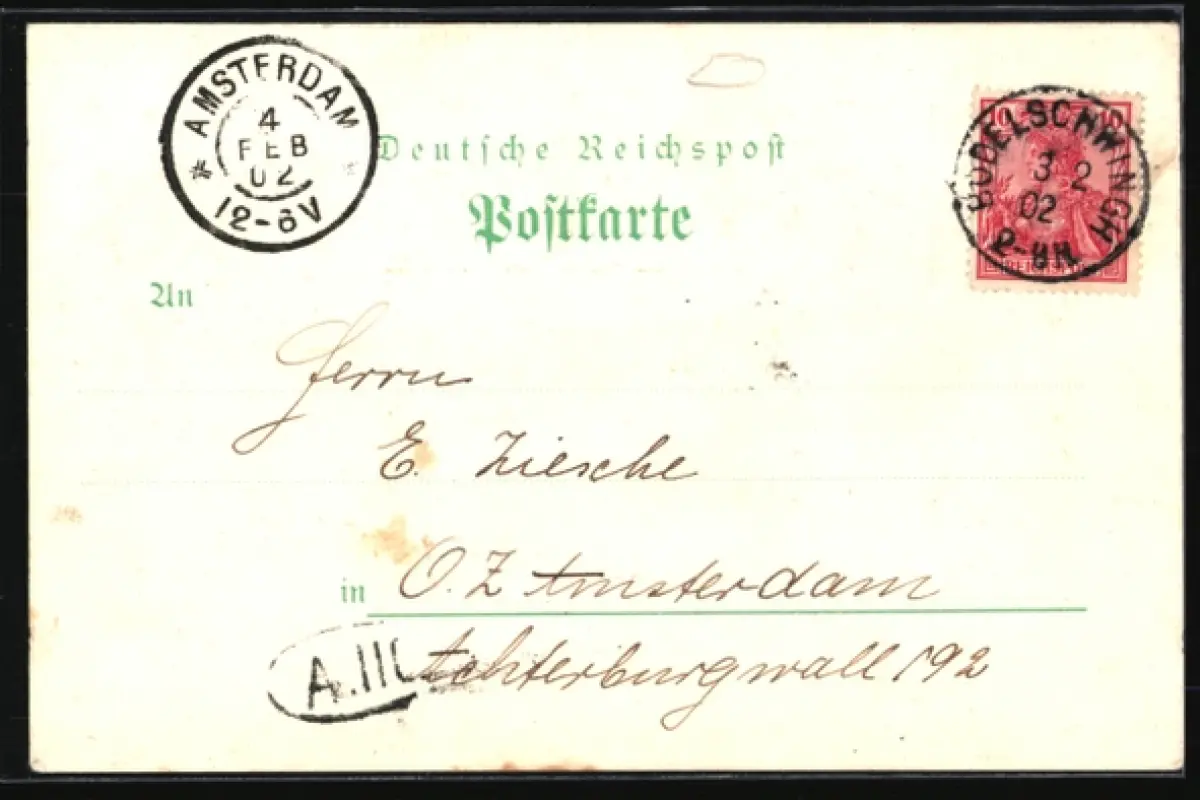 AMSTERDAM
4
FEB
02
12-6V
Deutsche Reichspost
Postkarte
10 10
BODELSCHWINGH
3 2
02
REICHSPOST
An
Herrn
E. Ziesche
in O. Z Amsterdam
A.III
Achterburgwall 192